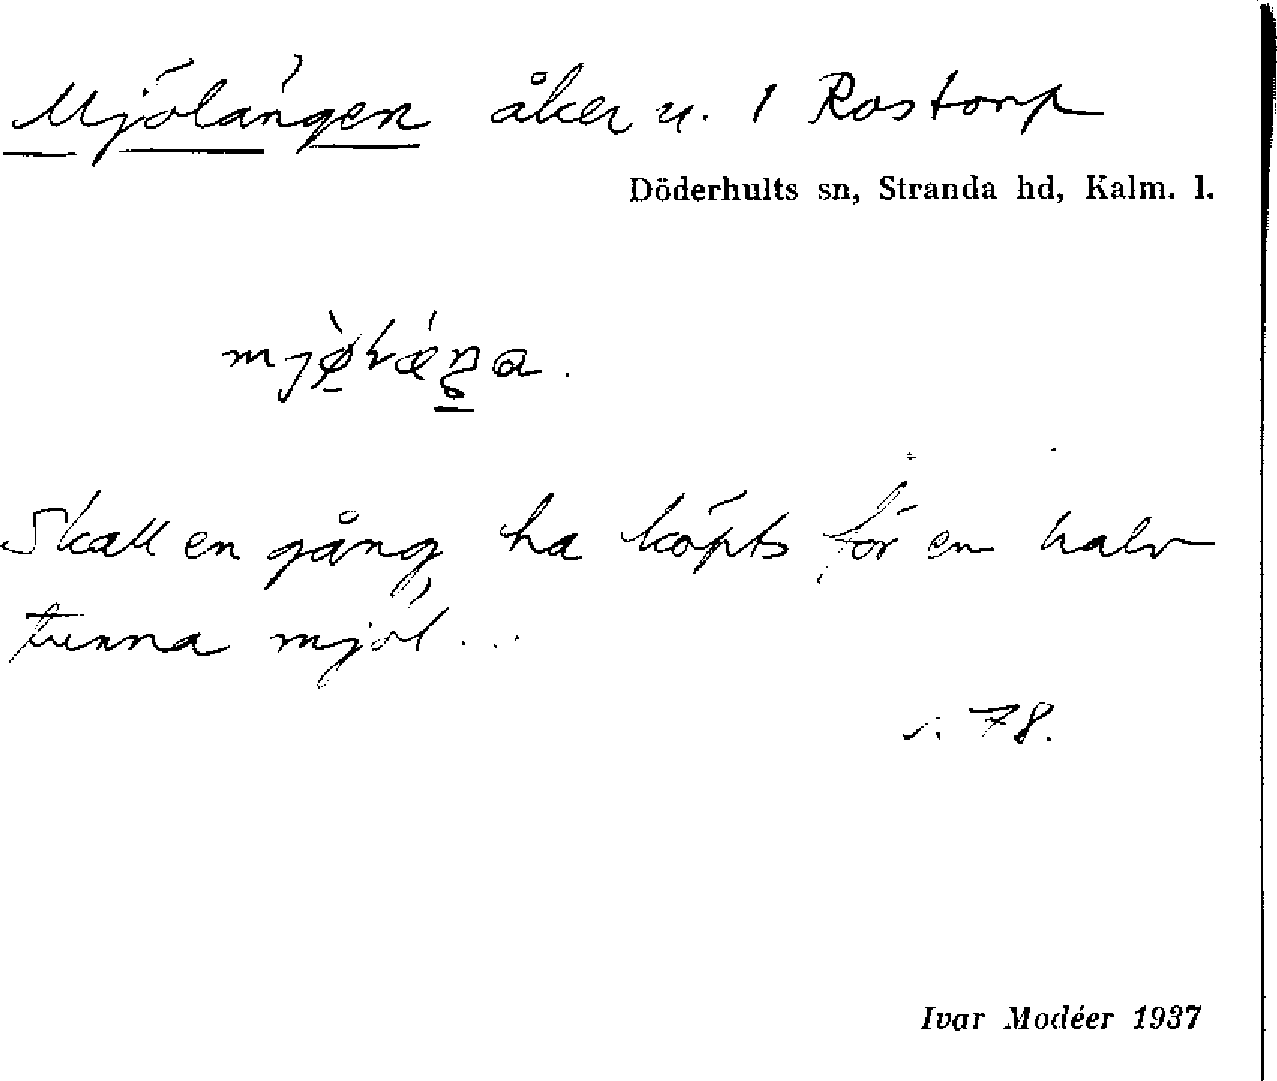 Mjölängen åker u. 1 Rostorp
Döderhults sn, Stranda hd, Kalm. l.
Skall en gång ha köpts för en halv
tunna mjöl...
s. 78.
Ivar Modéer 1937